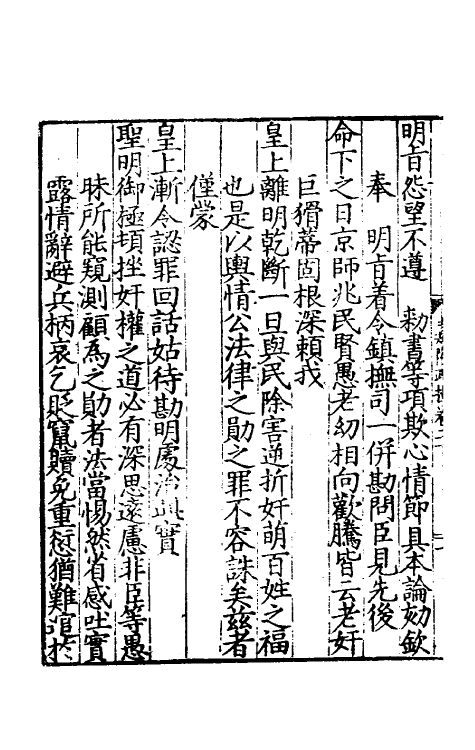 明旨怨望不遵　勑書等項欺心情節具本論劾欽
奉　明旨着令鎮撫司一併勘問臣見先後
命下之日京師兆民賢愚老幼相向歡騰皆云老奸
巨猾蒂固根深賴我
皇上離明乾斷一旦與民除害逆折奸萌百姓之福
也是以輿情公法律之勛之罪不容誅矣茲者
僅蒙
皇上漸令認罪回話姑待勘明處治與實
聖明御極頓挫奸權之道必有深思遠慮非臣等愚
昧所能窺測顧為之勛者法當惕然省感吐實
露情辭避兵柄哀乞貶竄贖免重愆猶難逭於